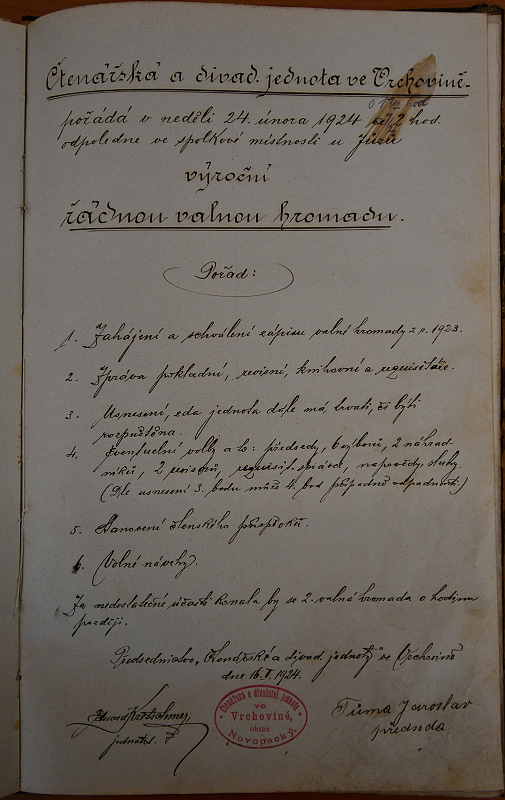 Čtenářská a divad. jednota ve Vrchovině.
o 1/2 hod
pořádá v neděli 24. února 1924 2 hod.
odpoledne ve spolkové místnosti u Jůzů
výroční
řádnou valnou hromadu.
Pořad:
1. Zahájení a schválení zápisu valné hromady z r. 1923.
2. Zpráva pokladní, revisní, knihovní a requisitáře.
3. Usnesení, zda jednota dále má trvati, či býti
rozpuštěna.
4. Eventuelní volby a to: předsedy, 6 výborů, 2 náhrad-
níků, 2 revisorů, requisit. správce, nápovědy, sluhy.
(Dle usnesení 3. bodu může 4. bod případně odpadnouti.)
5. Stanovení členského příspěvku.
6. Volné návrhy.
Za nedostatečné účasti konala by se 2. valná hromada o hodinu
později.
Předsednictvo Čtenářské a divad. jednoty ve Vrchovině
dne 16./I. 1924.
Čtenářská a divadelní jednota
ve
Vrchovině,
okres
Novopacký.
Eduard
jednatel.
Tůma Jaroslav
předseda